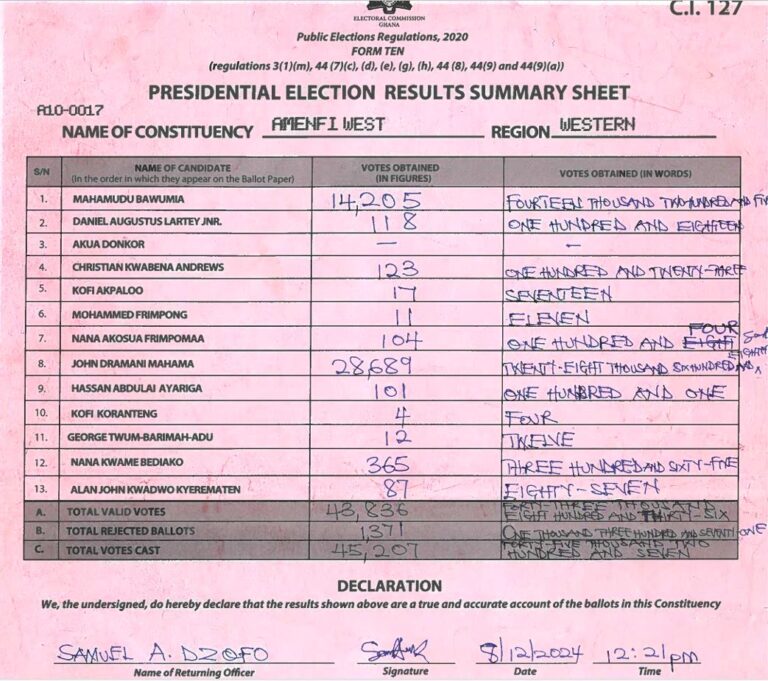 C.I. 127
ELECTORAL COMMISSION
GHANA
Public Elections Regulations, 2020
FORM TEN
(regulations 3(1)(m), 44 (7)(c), (d), (e), (g), (h), 44 (8), 44(9) and 44(9)(a))
PRESIDENTIAL ELECTION RESULTS SUMMARY SHEET
A10-0017
NAME OF CONSTITUENCY AMENFI WEST REGION WESTERN
S/N NAME OF CANDIDATE (In the order in which they appear on the Ballot Paper) VOTES OBTAINED (IN FIGURES) VOTES OBTAINED (IN WORDS)
1. MAHAMUDU BAWUMIA 14,205 FOURTEEN THOUSAND TWO HUNDRED AND
2. DANIEL AUGUSTUS LARTEY JNR. 118 ONE HUNDRED AND EIGHTEEN
3. AKUA DONKOR — —
4. CHRISTIAN KWABENA ANDREWS 123 ONE HUNDRED AND TWENTY-THREE
5. KOFI AKPALOO 17 SEVENTEEN
6. MOHAMMED FRIMPONG 11 ELEVEN
7. NANA AKOSUA FRIMPOMAA 104 ONE HUNDRED AND EIGHT FOUR
8. JOHN DRAMANI MAHAMA 28,689 TWENTY-EIGHT THOUSAND SIX HUNDRED AND
9. HASSAN ABDULAI AYARIGA 101 ONE HUNDRED AND ONE
10. KOFI KORANTENG 4 FOUR
11. GEORGE TWUM-BARIMAH-ADU 12 TWELVE
12. NANA KWAME BEDIAKO 365 THREE HUNDRED AND SIXTY-FIVE
13. ALAN JOHN KWADWO KYEREMATEN 87 EIGHTY-SEVEN
A. TOTAL VALID VOTES 43,836 FORTY-THREE THOUSAND EIGHT HUNDRED AND THIRTY-SIX
B. TOTAL REJECTED BALLOTS 1,371 ONE THOUSAND THREE HUNDRED AND SEVENTY-ONE
C. TOTAL VOTES CAST 45,207 FORTY-FIVE THOUSAND TWO HUNDRED AND SEVEN
DECLARATION
We, the undersigned, do hereby declare that the results shown above are a true and accurate account of the ballots in this Constituency
SAMUEL A. DZOFO 8/12/2024 12:21pm
Name of Returning Officer Signature Date Time